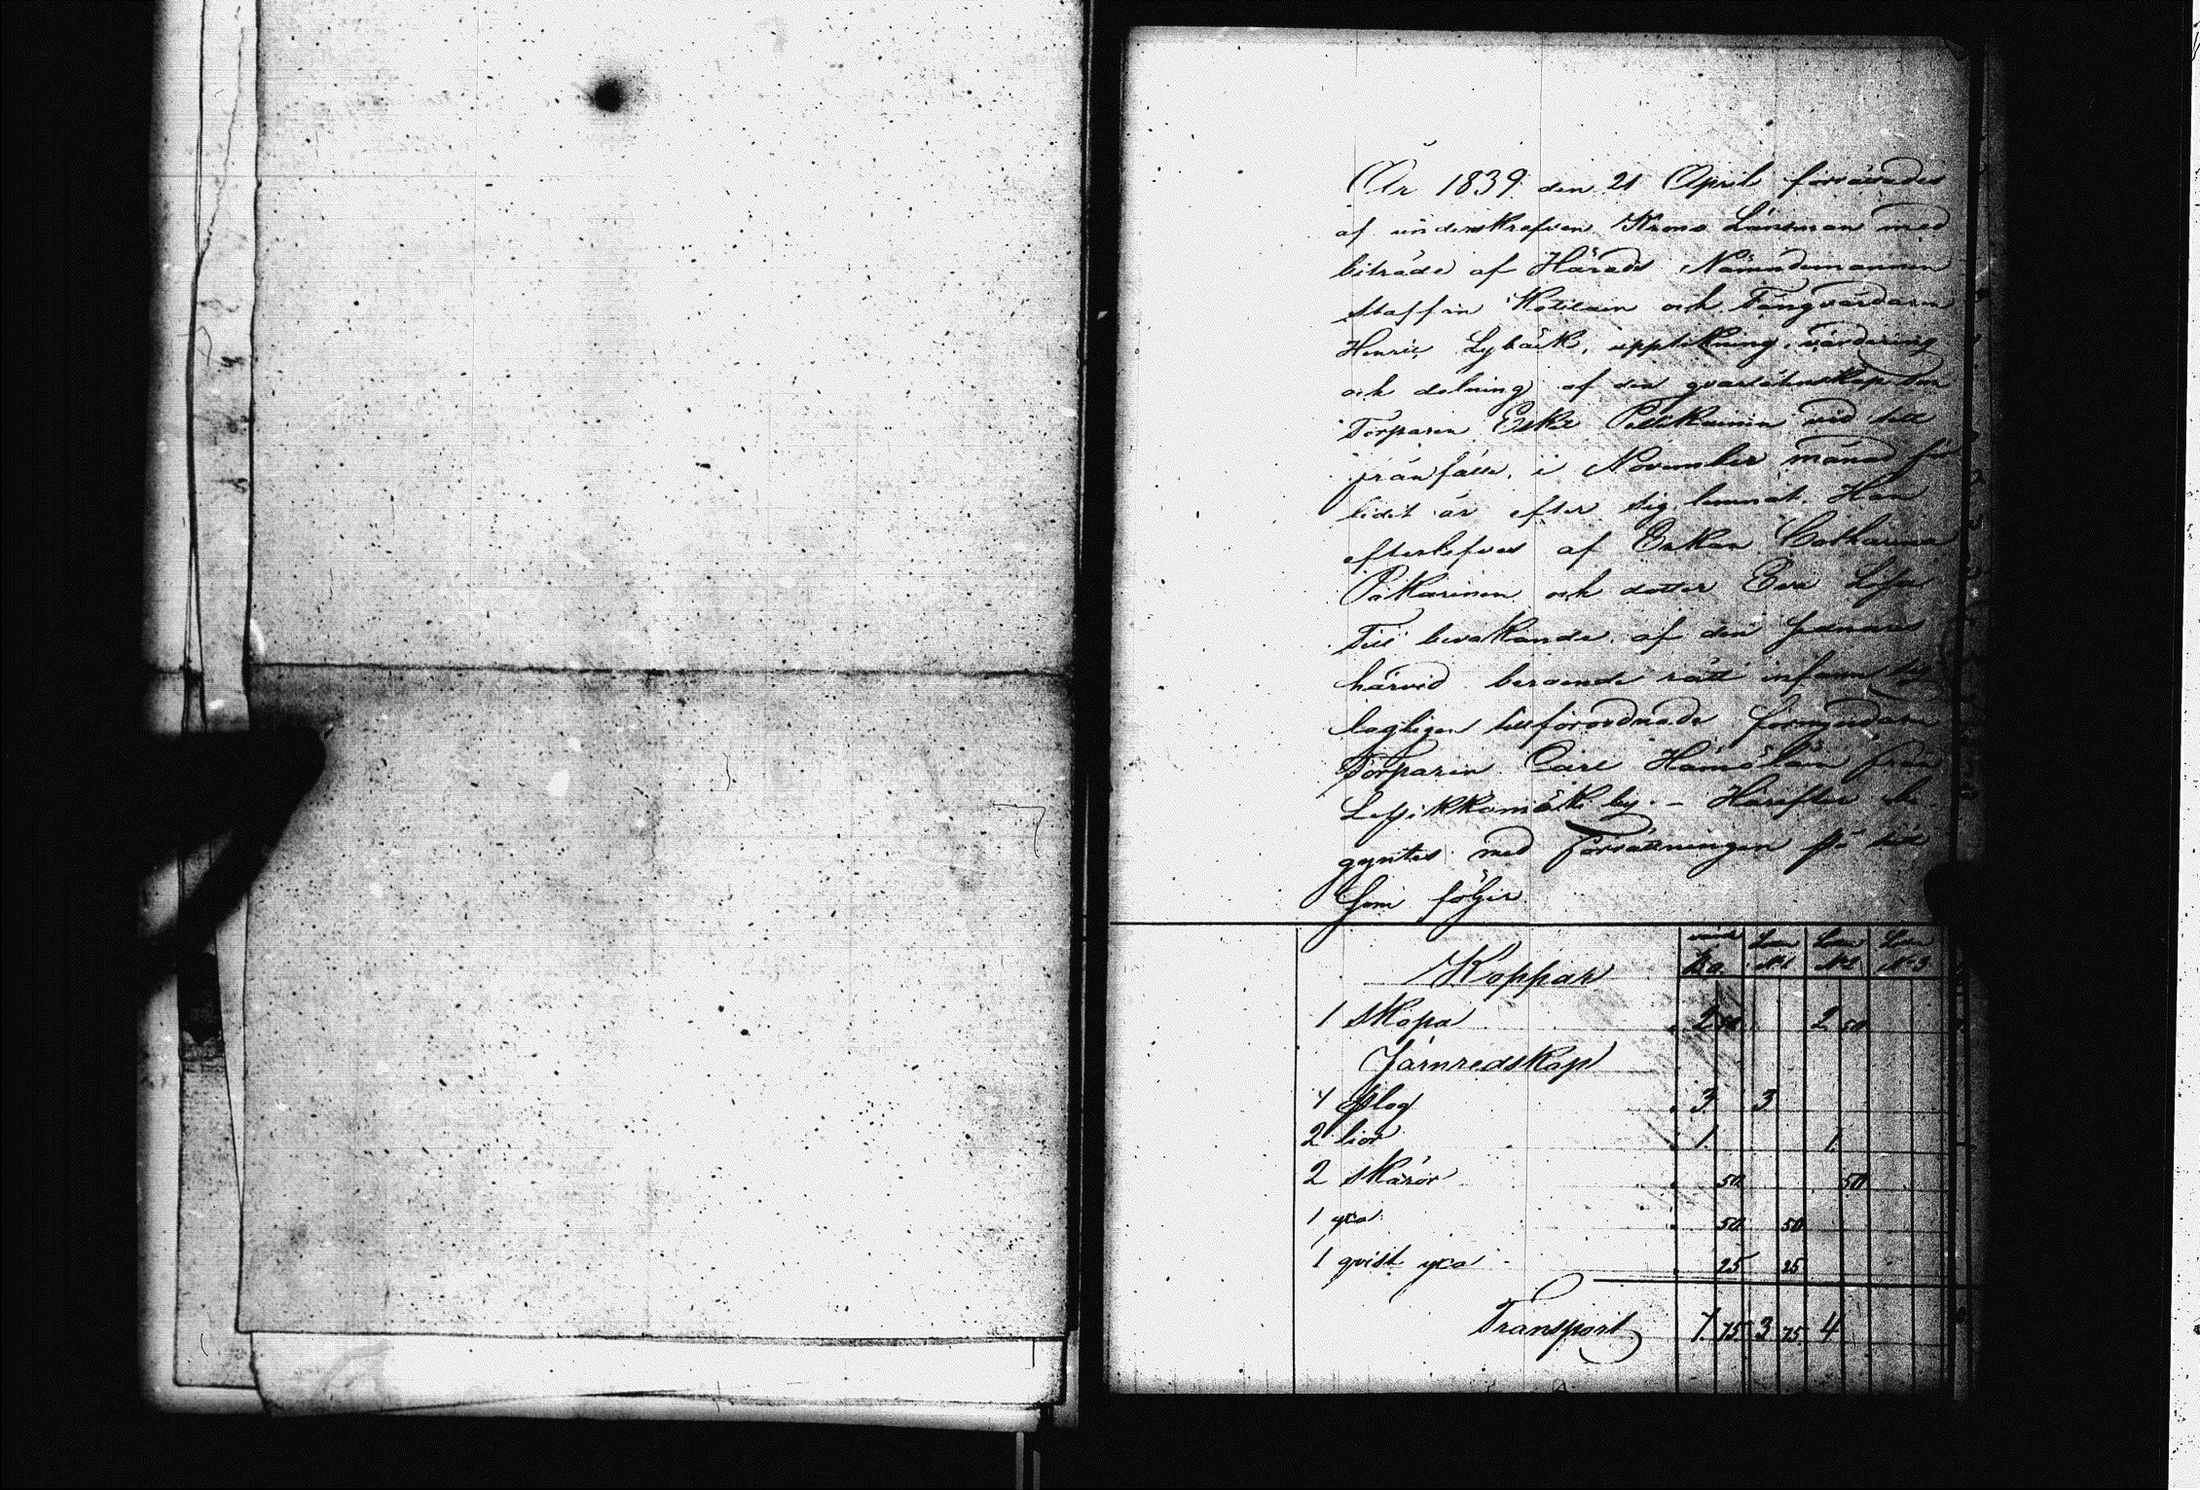 År 1839 den 21 April förrättades
af underskrefven Krono Länsman med
biträde af Härads Nämndemannen
Staffan Kotilain och Tingvärdaren
Henric Lybäck, uppteckning, värdering
och delning af den qvarlåtenskap som
Torparen Eskil Pelkkinen vid sitt
frånfälle, i November månad för
lidit år efter sig lemnat. Han
efterlefves af Enkan Catharina
Pakarinen och dotter Eva Lisa
Till bevakande af den senares
härvid beroende rätt infann sig
lagligen tillförordnade förmyndaren
Torparen Carl Hämäläin från
Leppikkomäki by. - Härefter be
gyntes med förrättningen på sätt
Som följer
Koppar
1 skopa 2 50 2 50
Järnredskap
1 plog 3 3
2 liar 1 1
2 skäror 50 50
1 yxa 50 50
1 qvist yxa 25 25
Transport 7 75 3 75 4